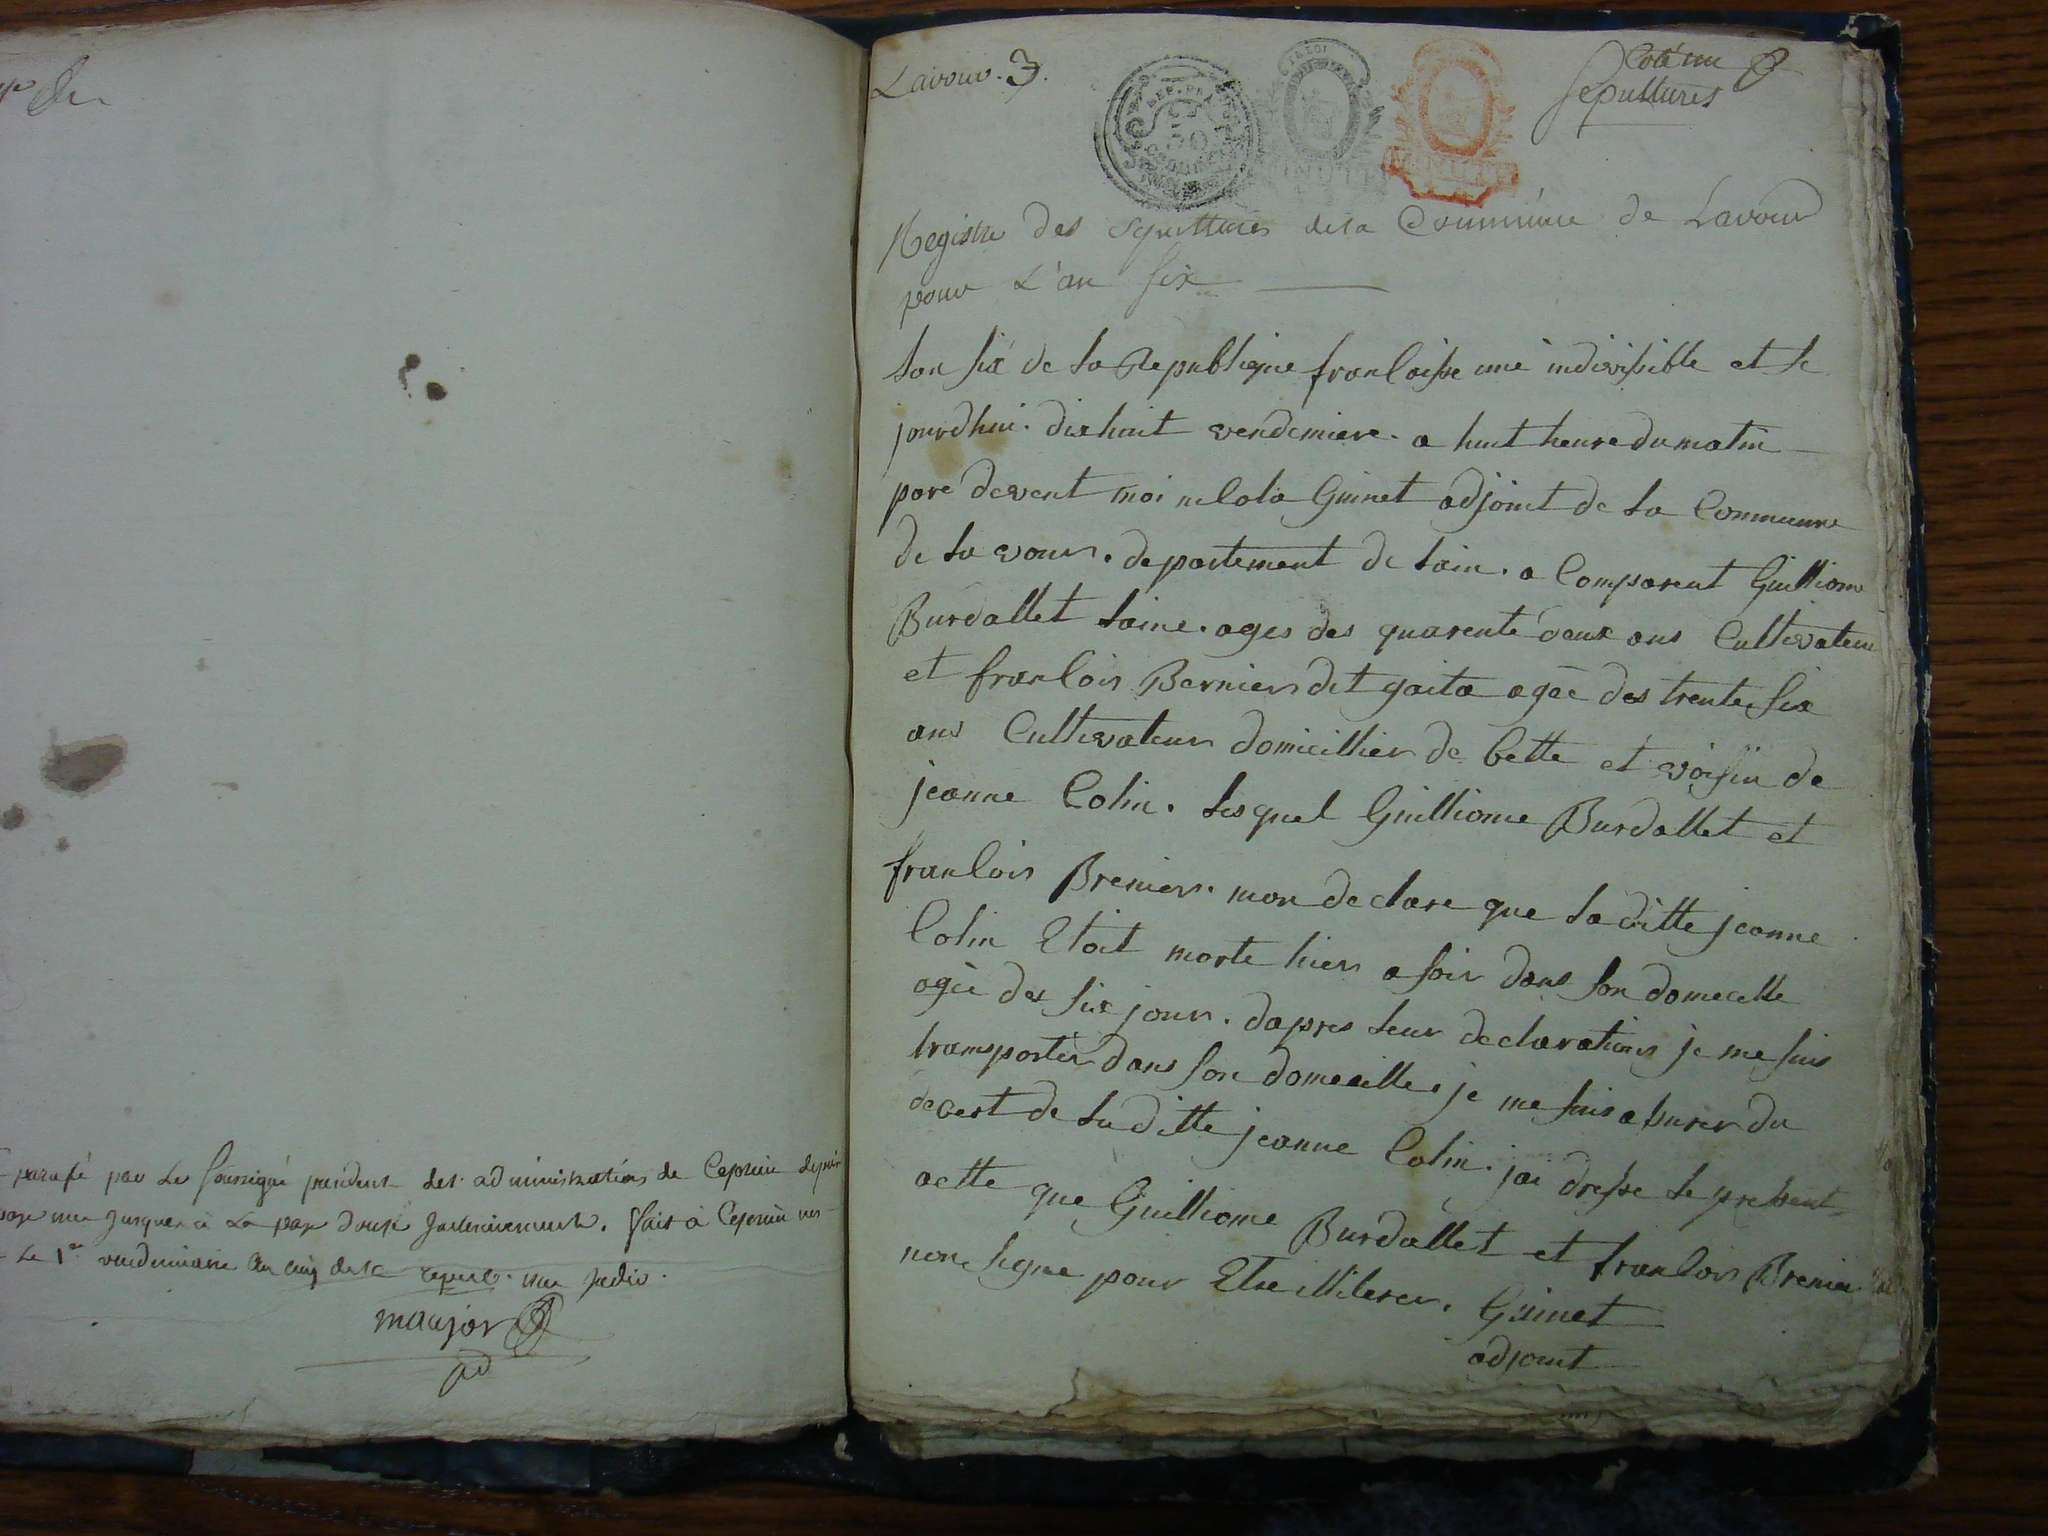 parafé par Le Soussigné president des administrations de Ceyzerieu depuis
page une jusques à La page douze Inclusivement. fait à Ceyzerieu
Le 1er vendemiaire an cinq de la repub. une Indiv.
maujor
pd
Lavour. 3.
Coté un
Sepultures
LA LOI
REP. FRA
50
CENT
MINUTE
Registre des Sepultures dela Commune de Lavour
pour L'an Six
Lan six de La Republique francoisse une indivisible et Le
jourdhui. dixhuit vendemiere. a huit heure du matin
pare devent moi nicola Guinet adjoint de La Commune
de La vour. departement de Lain. a Comparent Guilliome
Burdallet Laine. ages des quarente deux ans Cultivateur
et francois Bernier dit gaita agee des trente six
ans Cultivateur domicillier de bette et voisin de
jeanne Colin. Lesquel Guilliome Burdallet et
francois Brenier. mon declare que Laditte jeanne
Colin Etoit morte hier a soir dans son domecelle
agée des six jour. dapres Leur declarations je me suis
transporter dans son domecille. je me suis assurer du
decest de La ditte jeanne Colin. jai dresse Le present
actte que Guilliome Burdallet et francois Brenier
non signe pour Etre illiterer. Guinet
adjoint